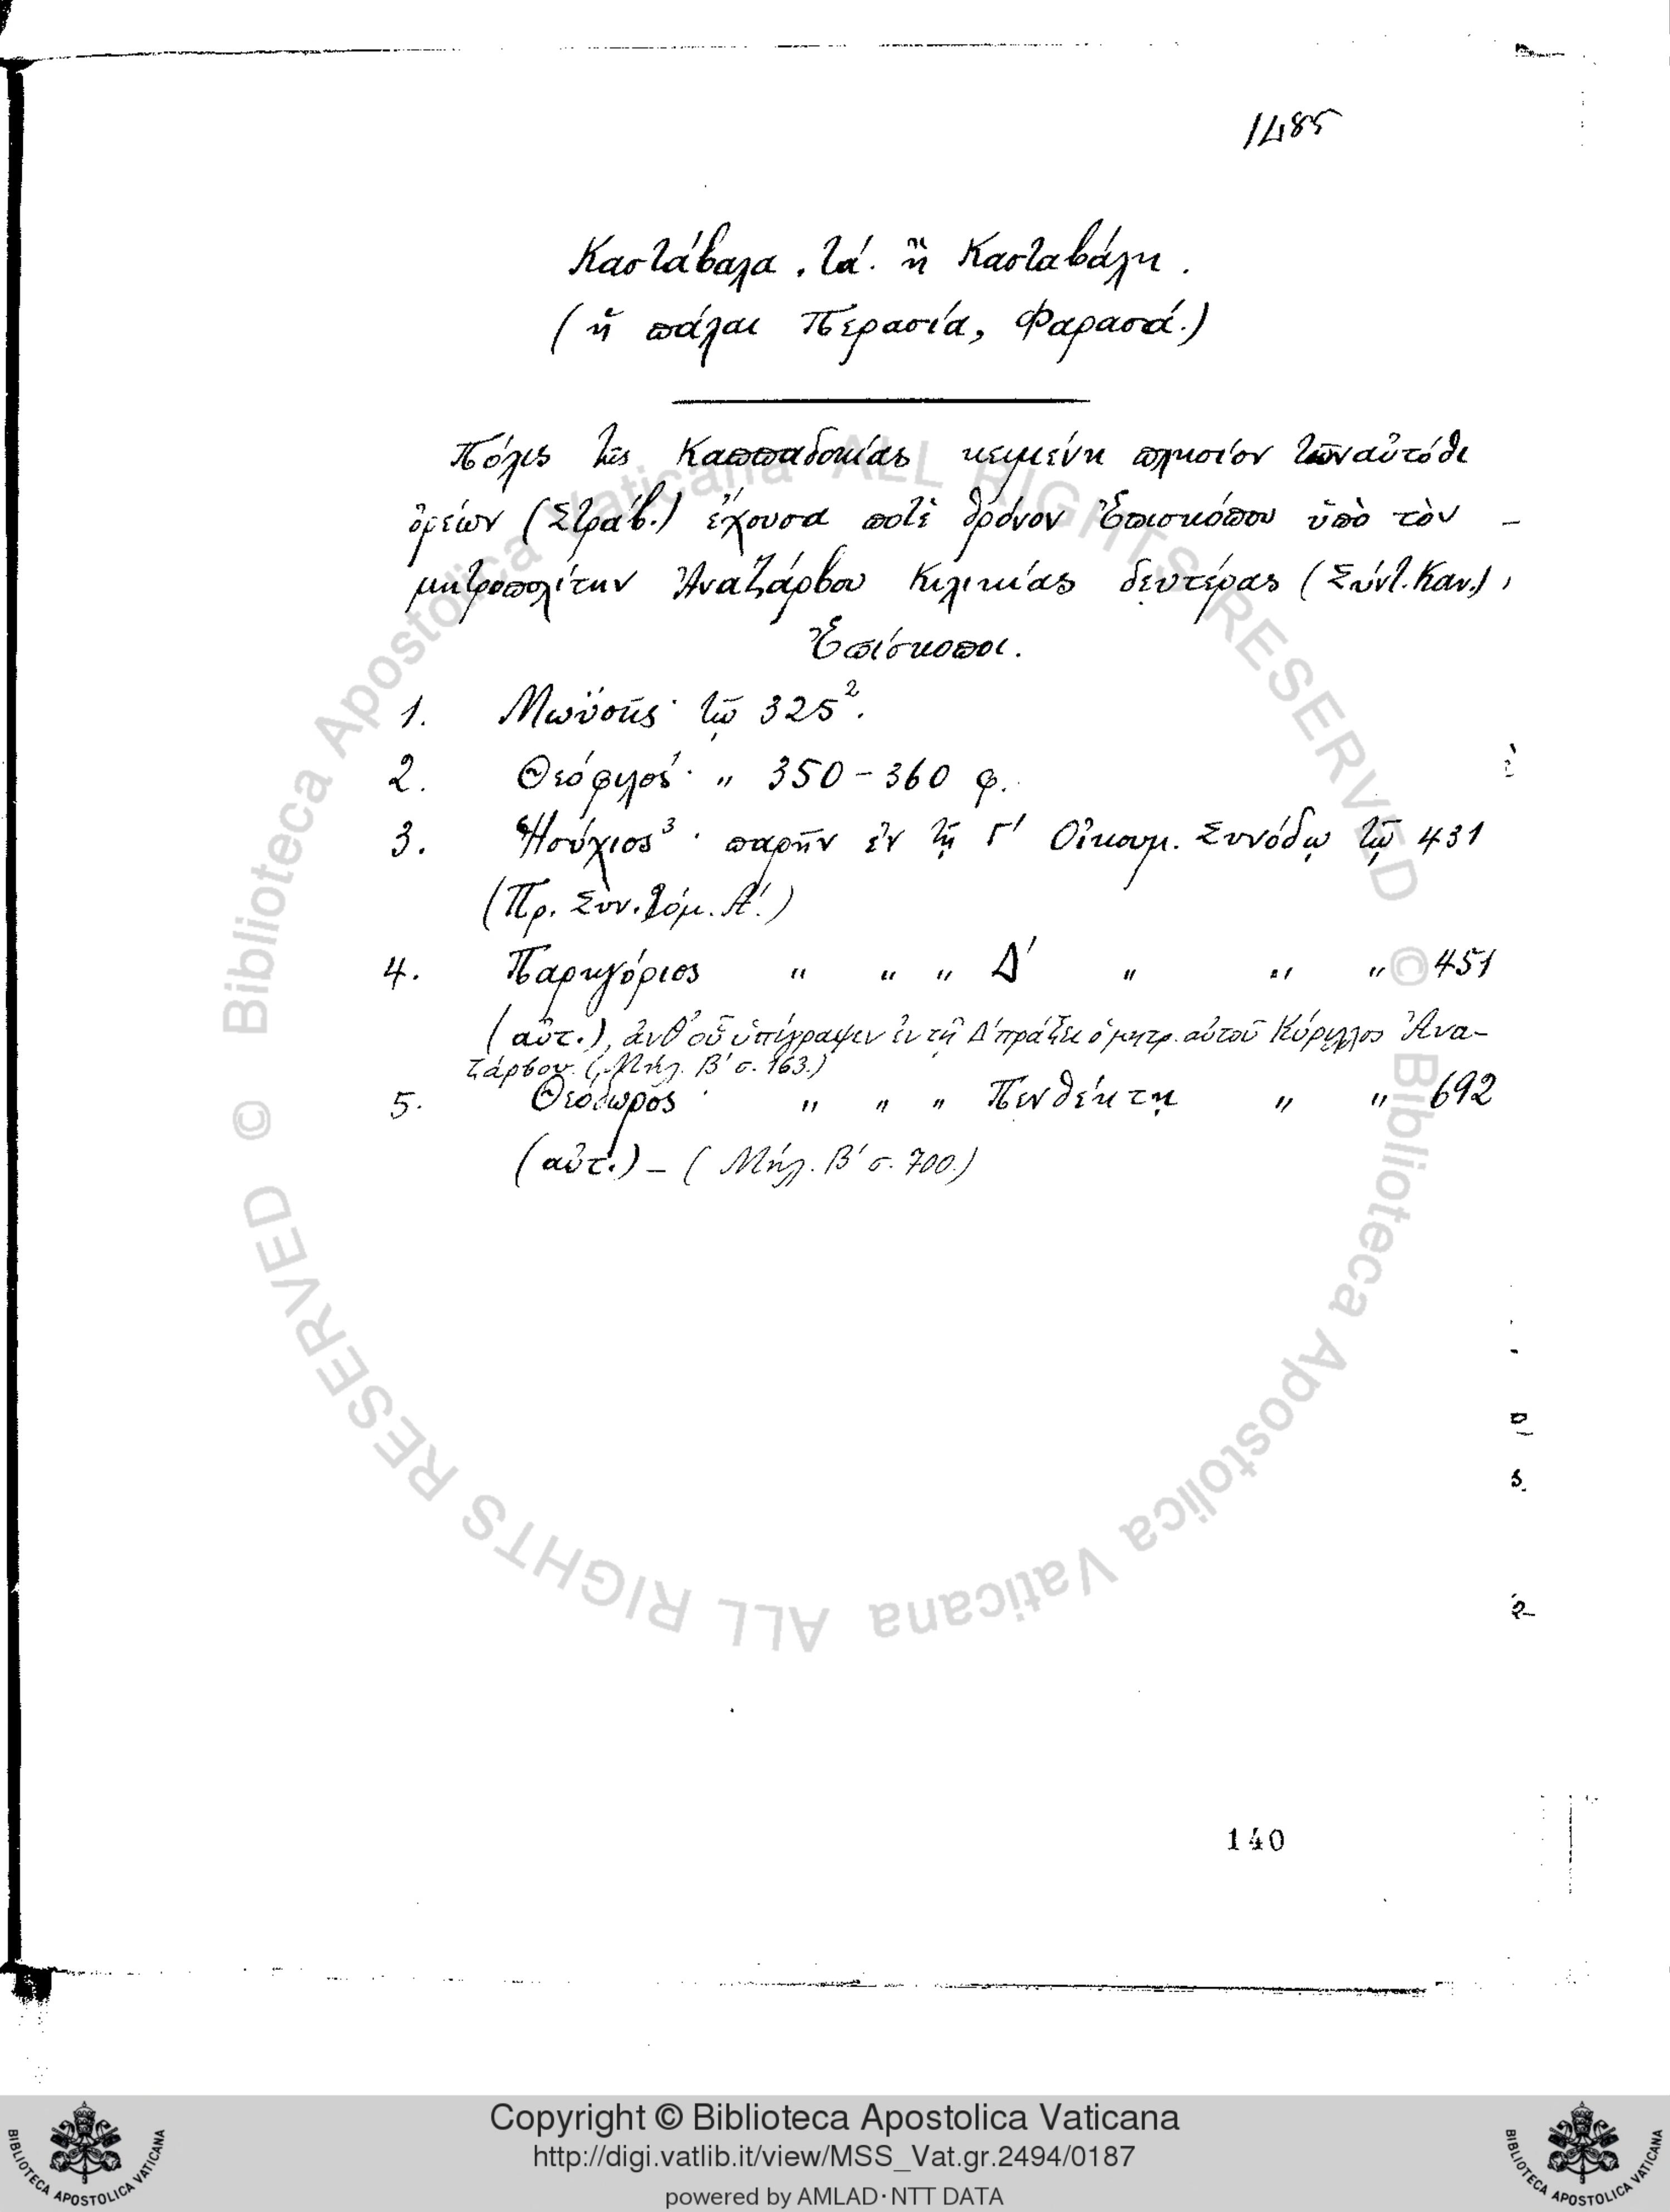 1485
Καστάβαλα, τά. ἢ Κασταβάλη.
(ἢ πάλαι Περασία, Φαρασά.)
Πόλις τῆς Καππαδοκίας κειμένη πλησίον τῶν αὐτόθι
ὀρέων (Στράβ.) ἔχουσα ποτὲ θρόνον Ἐπισκόπου ὑπὸ τὸν -
μητροπολίτην Ἀναζάρβου Κιλικίας δευτέρας (Σύντ. Καν.),
Ἐπίσκοποι.
1. Μωϋσῆς· τῷ 325².
2. Θεόφιλος· " 350-360 φ.
3. Ἡσύχιος³· παρῆν ἐν τῇ Γ' Οἰκουμ. Συνόδῳ τῷ 431
(Πρ. Συν. Τόμ. Α'.)
4. Παρηγόριος " " " Δ' " " " 451
(αὐτ.), ἀνθ' οὗ ὑπέγραψεν ἐν τῇ Δ' πράξει ὁ μητρ. αὐτοῦ Κύριλλος Ἀνα-
ζάρβου. (Μήλ. Β' σ. 163.)
5. Θεόδωρος· " " " Πενθέκτῃ " " 692
(αὐτ.) - (Μήλ. Β' σ. 700.)
140
© Biblioteca Apostolica Vaticana ALL RIGHTS RESERVED
© Biblioteca Apostolica Vaticana ALL RIGHTS RESERVED
Copyright © Biblioteca Apostolica Vaticana
http://digi.vatlib.it/view/MSS_Vat.gr.2494/0187
powered by AMLAD·NTT DATA
BIBLIOTECA APOSTOLICA VATICANA
BIBLIOTECA APOSTOLICA VATICANA